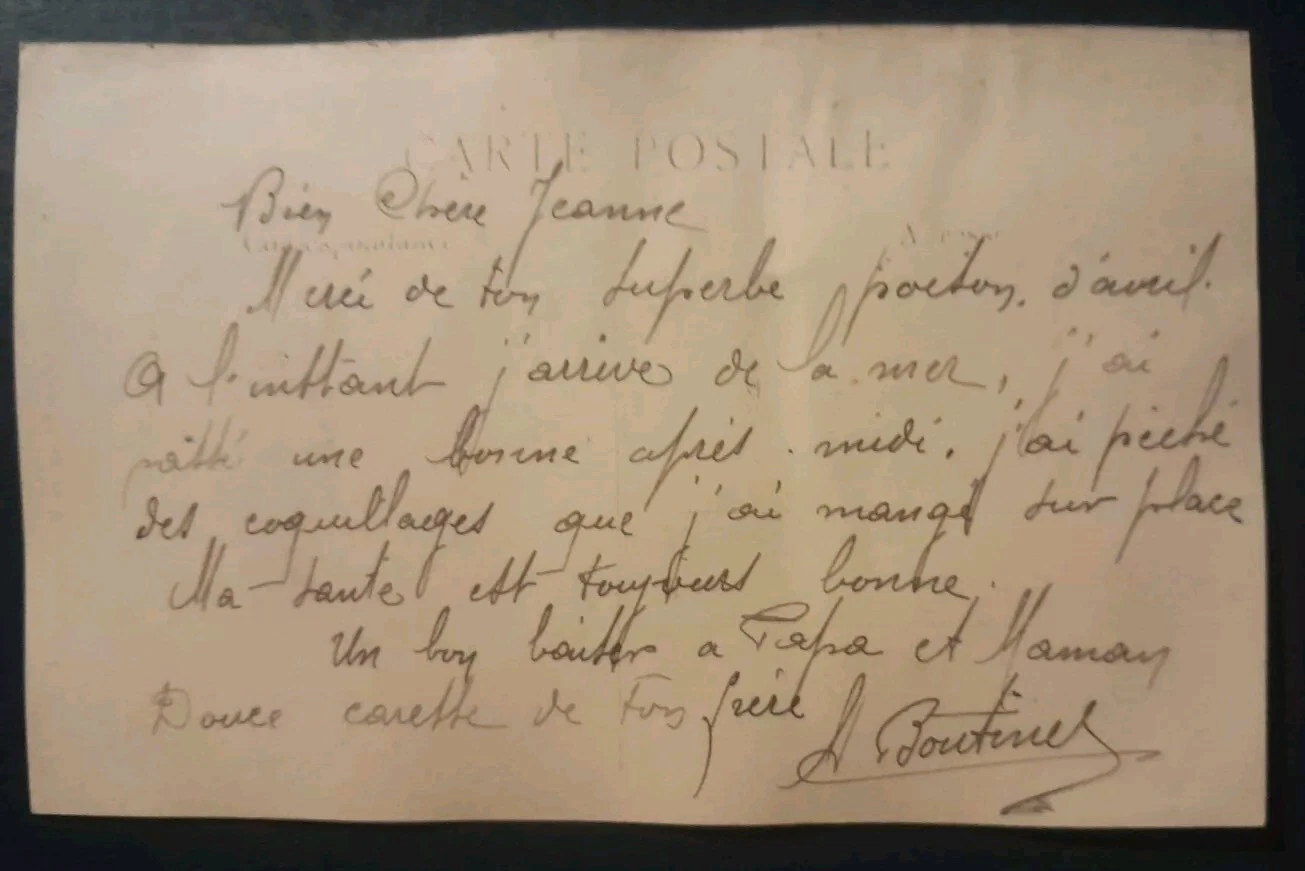 CARTE POSTALE
Bien Chère Jeanne
Correspondance
Adresse
Merci de ton superbe poisson d'avril.
A l'instant j'arrive de la mer, j'ai
passé une bonne après-midi. j'ai pêché
des coquillages que j'ai mangé sur place
Ma santé est toujours bonne.
Un bon baiser a Papa et Maman
Douce caresse de ton frère
A Boutinet